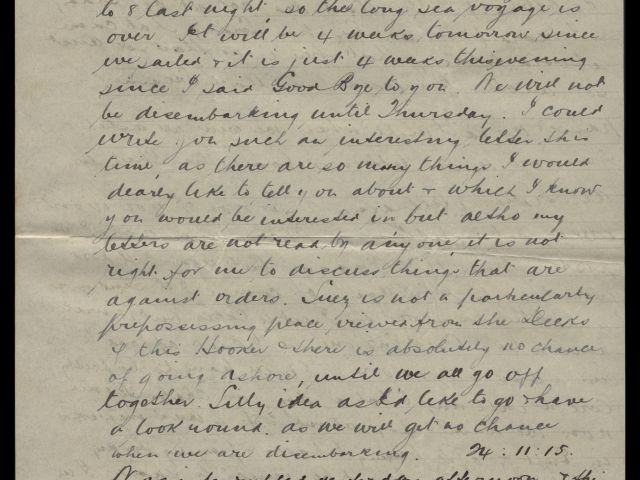 to 8 last night so the long sea voyage is
over It will be 4 weeks tomorrow since
we sailed & it is just 4 weeks this evening
since I said Good Bye to you. We will not
be disembarking until Thursday. I could
write you such an interesting letter this
time, as there are so many things I would
dearly like to tell you about & which I know
you would be interested in but altho my
letters are not read by anyone it is not
right for me to discuss things that are
against orders. Suez is not a particularly
prepossessing place, viewed from the Decks
of this Hooker & there is absolutely no chance
of going ashore, until we all go off
together. Silly idea as I'd like to go & have
a look round. as we will get no chance
when we are disembarking. 24:11:15.
afternoon & this